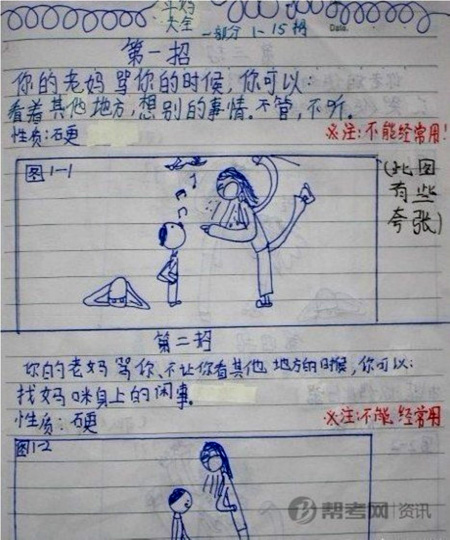 斗妈
大全
一部分 1-15招
Date.
第一招
你的老妈骂你的时候,你可以:
看着其他地方,想别的事情.不管,不听.
性质:石更
※注:不能经常用!
图1-1
(此图
有些
夸张)
第二招
你的老妈骂你、不让你看其他地方的时候,你可以:
找妈咪身上的闲事.
性质:石更
※注:不能经常用
图1-2
帮考网 资讯